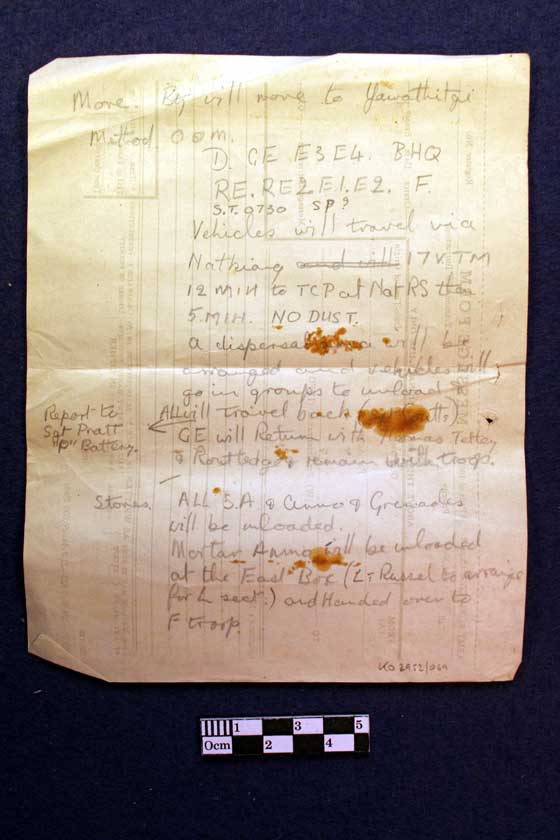 Move. By will move to Yawathitgyi
Method O O M.
D. GE E3 E4. BHQ
RE. RE2 E1. E2. F.
S.T. 0730 SP?
Vehicles will travel via
Nathiang and will 17 V.T.M
12 MIH to TCP at Nat RS then
5 MIH. NO DUST.
a dispersal area will be
arranged and vehicles will
go in groups to unload
ALL will Travel back
GE will Return with Thomas Tettey
& Routledge remain with troop.
Report to
Sgt Pratt
"P" Battery.
Stores. ALL S.A & ammo & Grenades
will be unloaded.
Mortar Ammo will be unloaded
at the East Box (Lt Russel to arrange
for h sect.) and Handed over to
F troop.
KO 2952/069
0cm 1 2 3 4 5